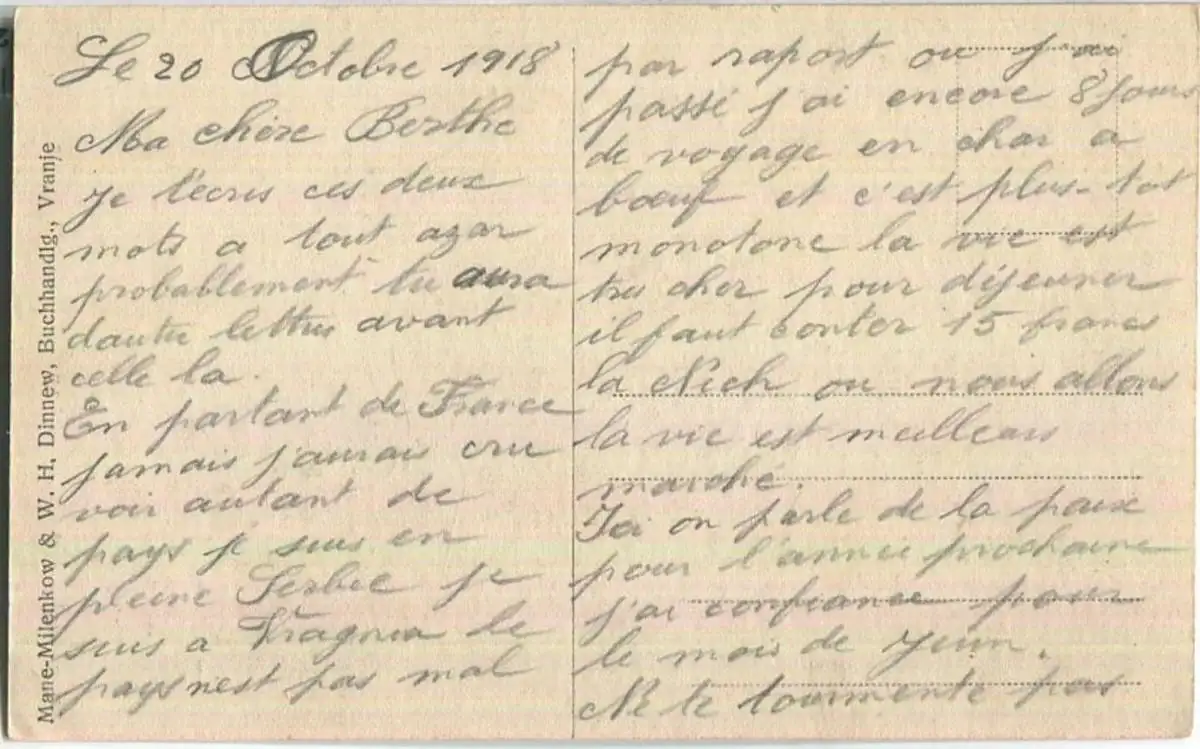 Le 20 Octobre 1918
Ma chère Berthe
Je t'écris ces deux
mots a tout azar
probablement tu aura
dautre lettres avant
celle la.
En partant de France
jamais j'aurais cru
voir autant de
pays je suis en
pleine Serbie je
suis a Vragna le
pays nest pas mal
par raport ou j'ai
passé j'ai encore 8 jours
de voyage en char a
bœuf et c'est plus-tot
monotone la vie est
tres cher pour déjeuner
il faut conter 15 francs
la Nich ou nous allons
la vie est meilleurs
marché.
Ici on parle de la paix
pour l'année prochaine
j'ai confiance pour
le mois de Juin.
Ne te tourmente pas
Mane-Milenkow & W. H. Dinnew, Buchhandlg., Vranje